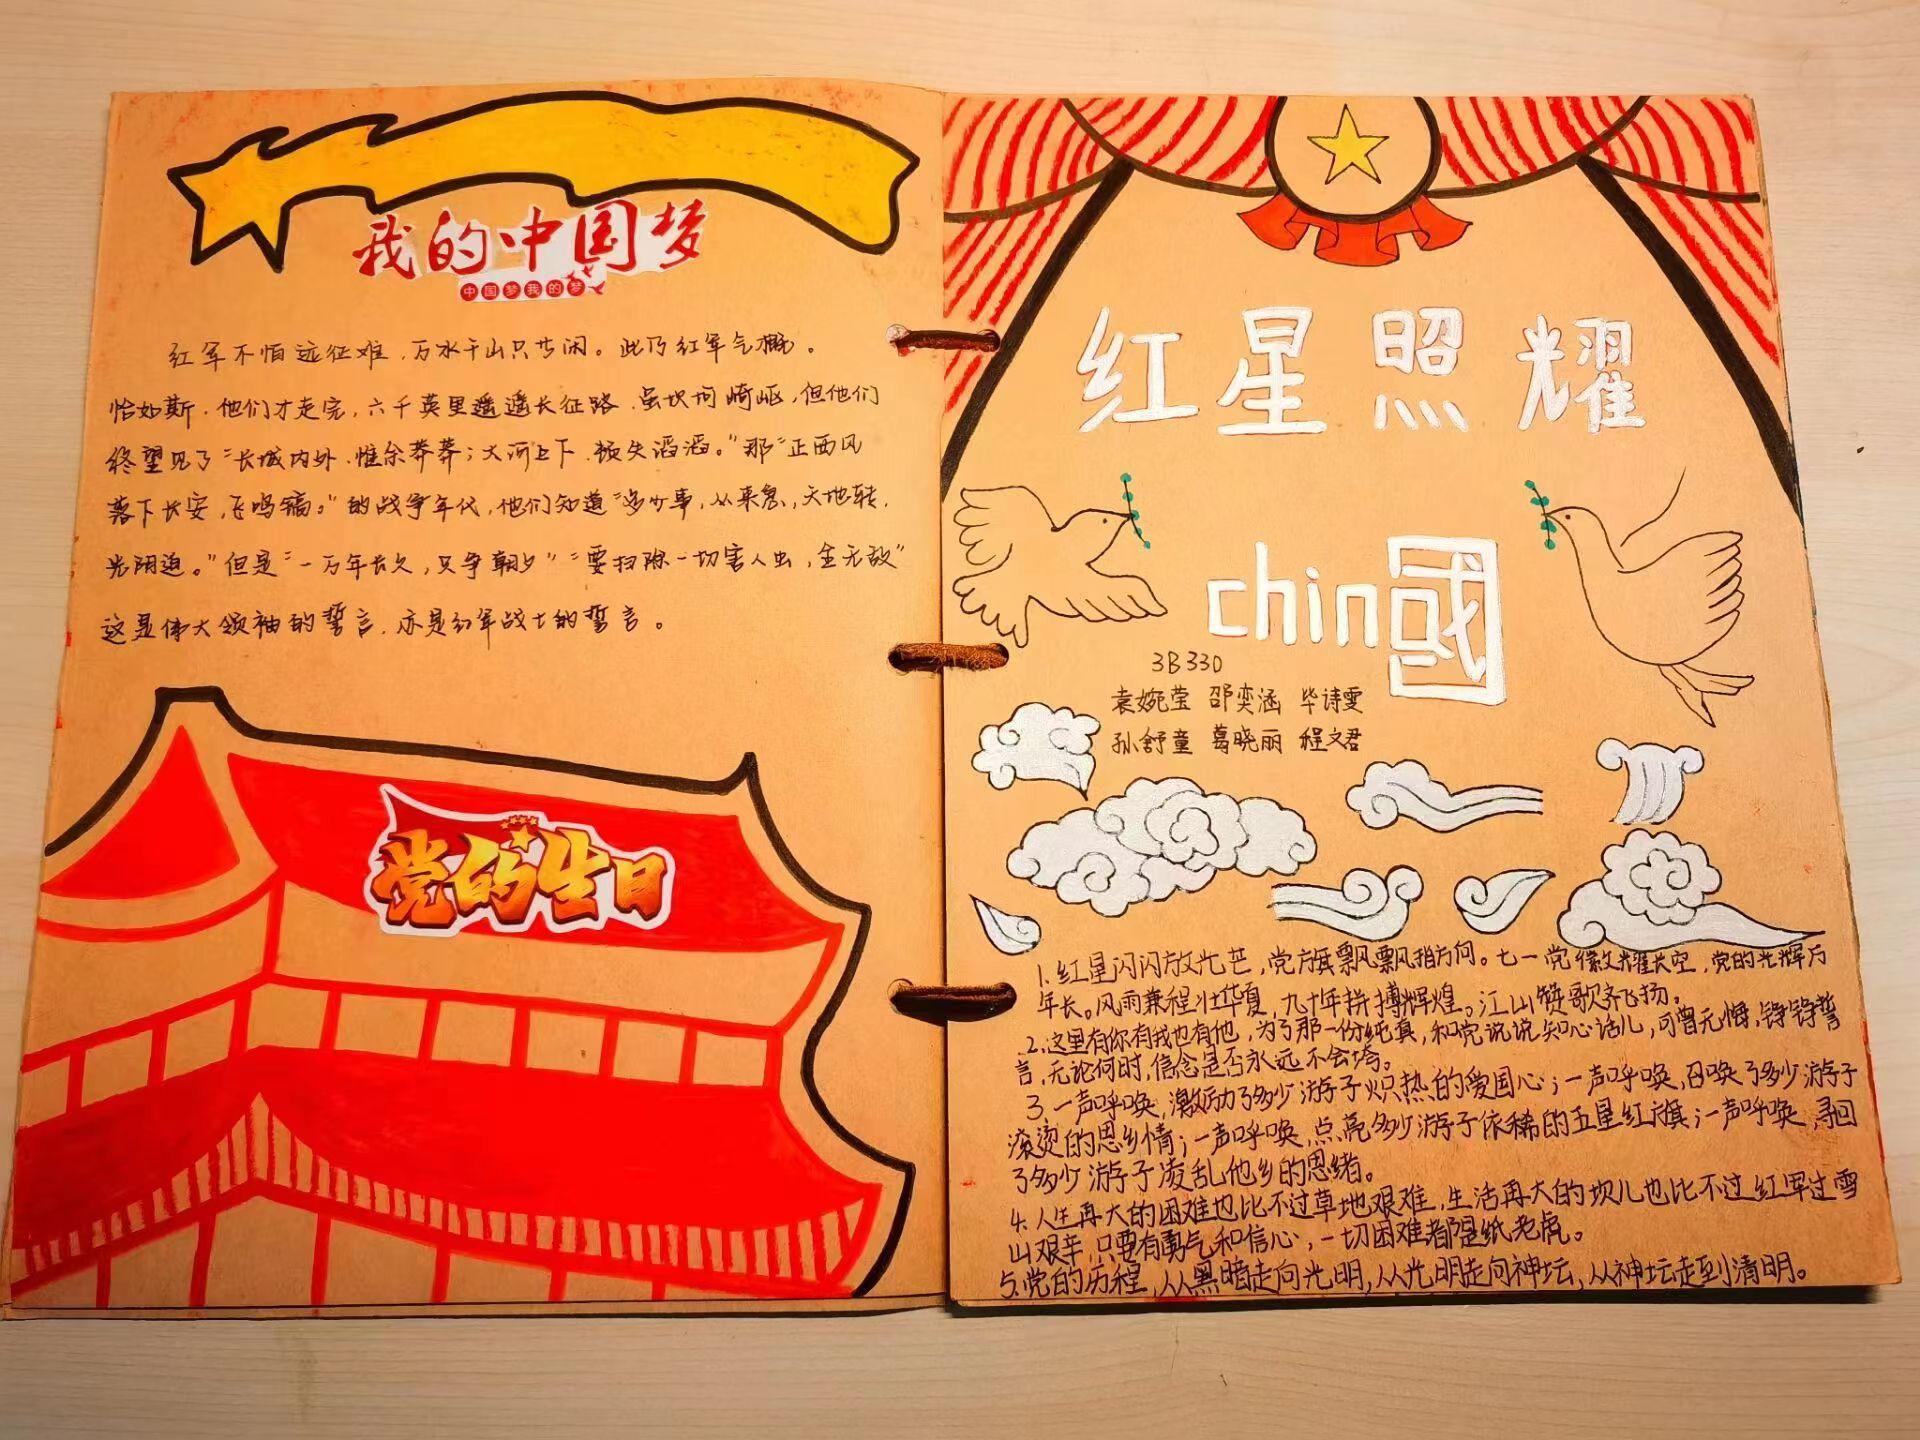 我的中国梦
中国梦我的梦
红军不怕远征难,万水千山只等闲。此乃红军气概。
恰如斯,他们才走完,六千英里遥遥长征路,虽坎坷崎岖,但他们
终望见了"长城内外,惟余莽莽;大河上下,顿失滔滔。"那"正西风
落下长安,飞鸣镝。"的战争年代,他们知道"多少事,从来急,天地转,
光阴迫。"但是"一万年长久,只争朝夕""要扫除一切害人虫,全无敌"
这是伟大领袖的誓言,亦是红军战士的誓言。
党的生日
红星照耀
chin國
3B330
袁婉莹 邵奕涵 毕诗雯
孙舒童 葛晓丽 程文君
1.红星闪闪放光芒,党旗飘飘指方向。七一党徽耀长空,党的光辉万
年长。风雨兼程壮华夏,九十年拼搏辉煌。江山赞歌齐飞扬。
2.这里有你有我也有他,为了那一份纯真,和党说说知心话儿,可曾无悔,铮铮誓
言,无论何时,信念是否永远不会垮。
3.一声呼唤,激励了多少游子炽热的爱国心;一声呼唤,召唤了多少游子
滚烫的思乡情;一声呼唤,点亮多少游子依稀的五星红旗;一声呼唤,寻回
了多少游子凌乱他乡的思绪。
4.人生再大的困难也比不过草地艰难,生活再大的坎儿也比不过红军过雪
山艰辛,只要有勇气和信心,一切困难都是纸老虎。
5.党的历程,从黑暗走向光明,从光明走向神坛,从神坛走到清明。